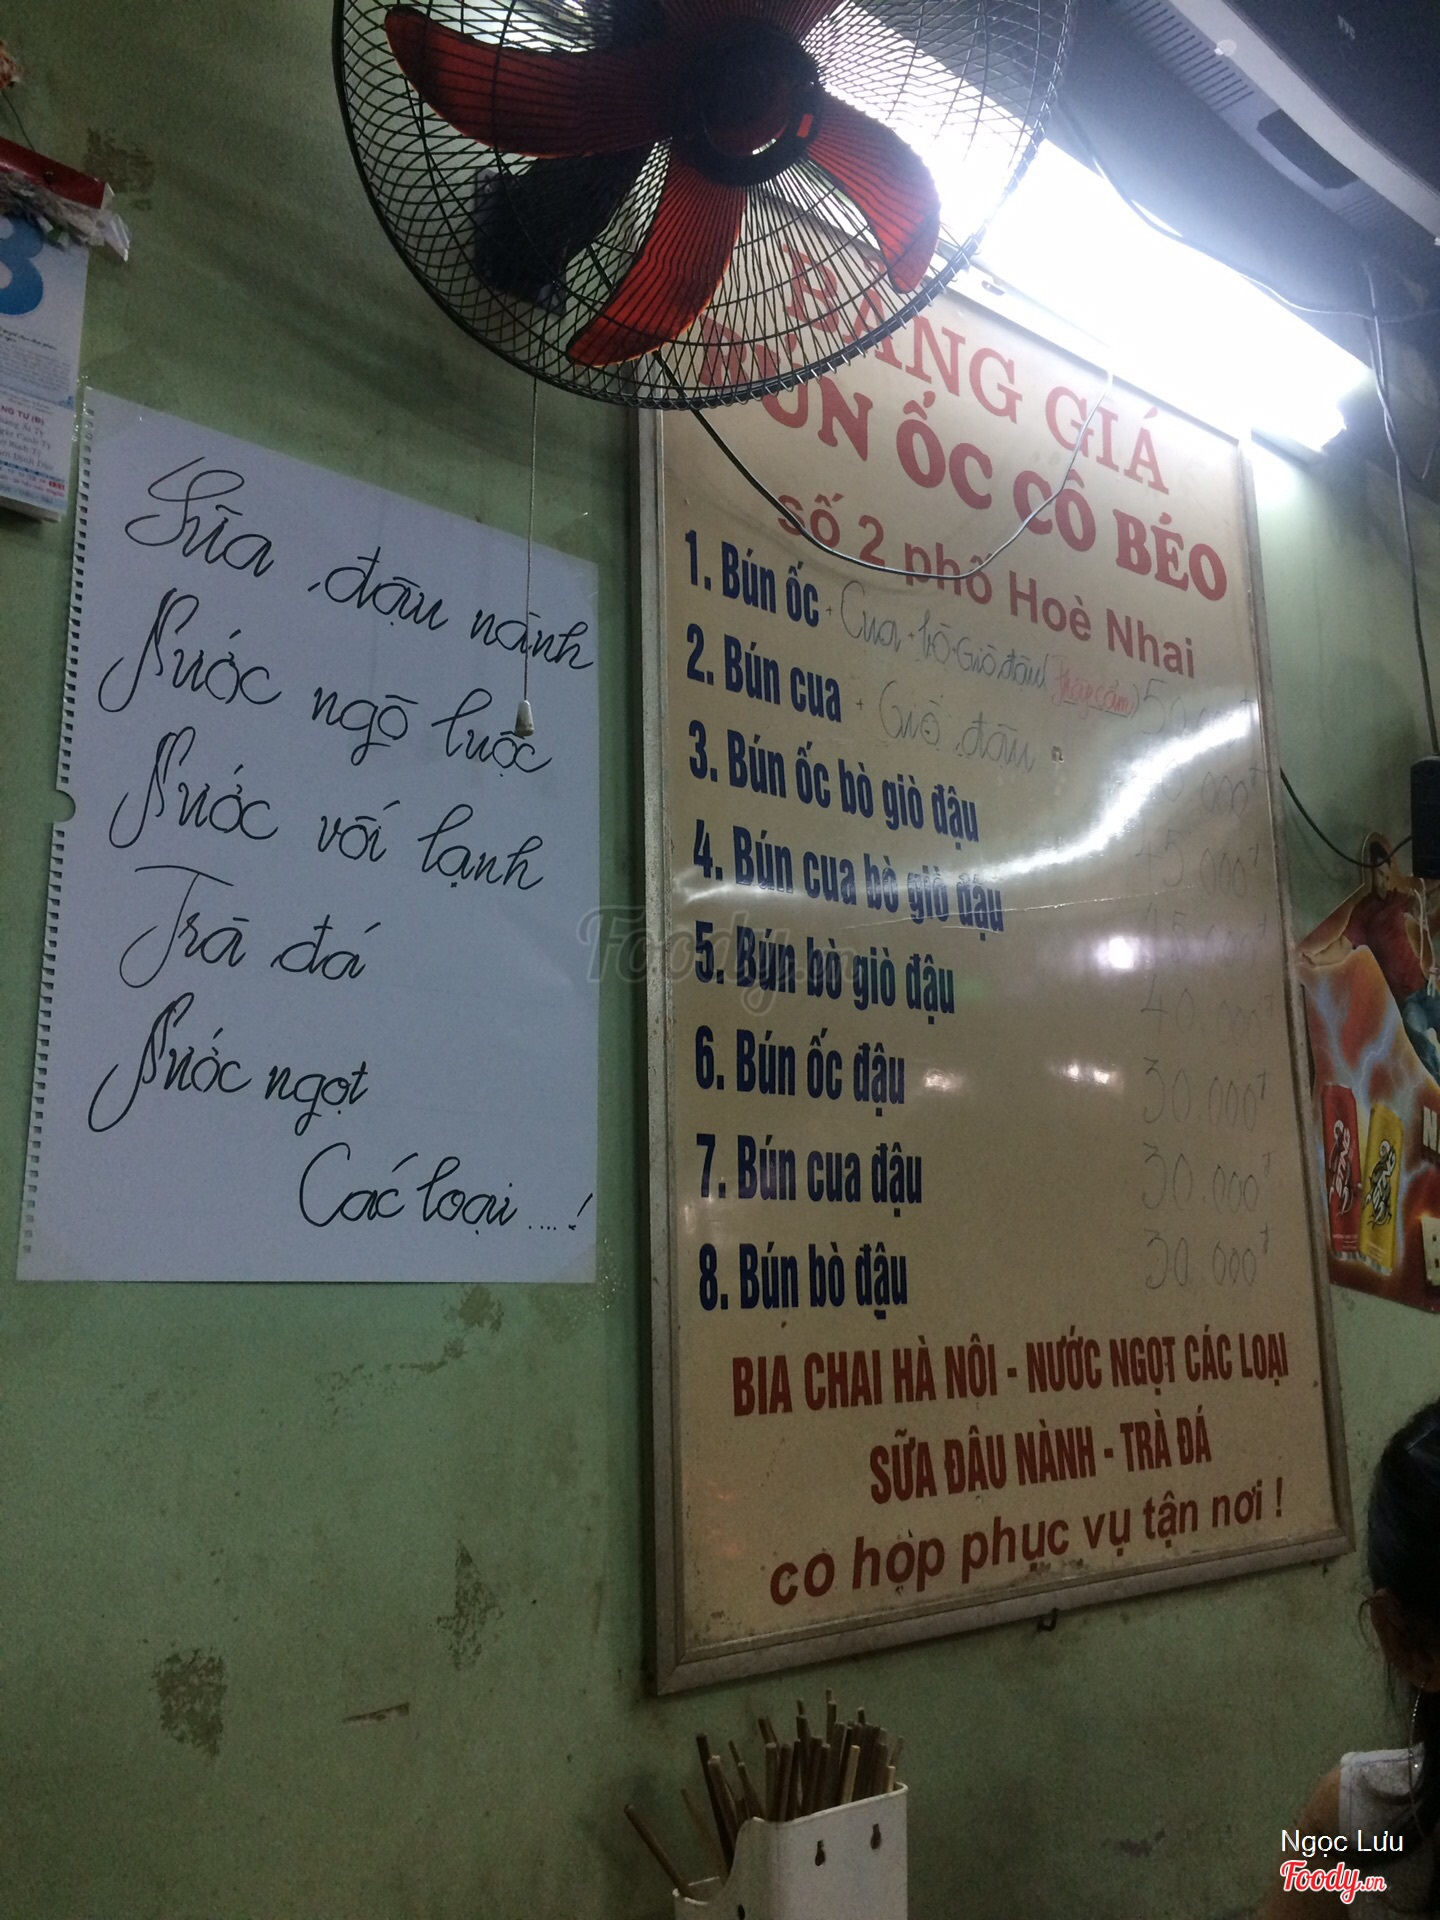 Sữa đậu nành
Nước ngô luộc
Nước vối lạnh
Trà đá
Nước ngọt
Các loại....!
BẢNG GIÁ
BÚN ỐC CÔ BÉO
số 2 phố Hoè Nhai
1. Bún ốc + Cua + bò + Giò đậu (thập cẩm) 50.000đ
2. Bún cua + Giò đậu 000đ
3. Bún ốc bò giò đậu 45.000đ
4. Bún cua bò giò đậu 45.000đ
5. Bún bò giò đậu 40.000đ
6. Bún ốc đậu 30.000đ
7. Bún cua đậu 30.000đ
8. Bún bò đậu 30.000đ
BIA CHAI HÀ NÔI - NƯỚC NGỌT CÁC LOẠI
SỮA ĐÂU NÀNH - TRÀ ĐÁ
co hộp phục vụ tận nơi !
Foody.vn
Ngọc Lưu
Foody.vn